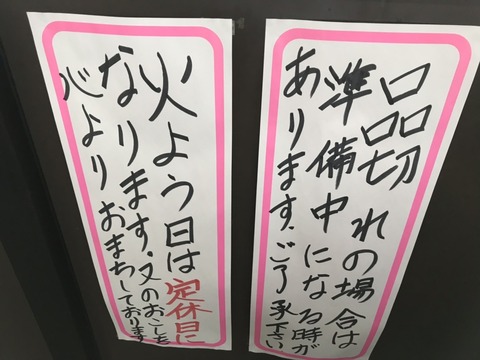 品切れの場合は
準備中になる時が
あります。ご了承下さい
火よう日は定休日に
なります。又のおこしを
心よりおまちしております